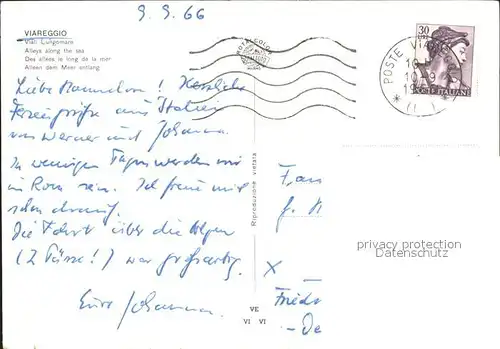 9.9.66
VIAREGGIO
Viali Lungomare
Alleys along the sea
Des allées le long de la mer
Alleen dem Meer entlang
Liebe ! Herzliche
Feriengrüße aus Italien
von Werner und Johanna.
In wenigen Tagen werden wir
in Rom sein. Ich freue mich
schon drauf.
Die Fahrt über die Alpen
(2 Pässe!) war großartig.
Eure Johanna.
Riproduzione vietata
VE
VI VI
30
POSTE VIA
POSTE ITALIANE
Fam
J. H
X
Fried
-De
privacy protection
Datenschutz